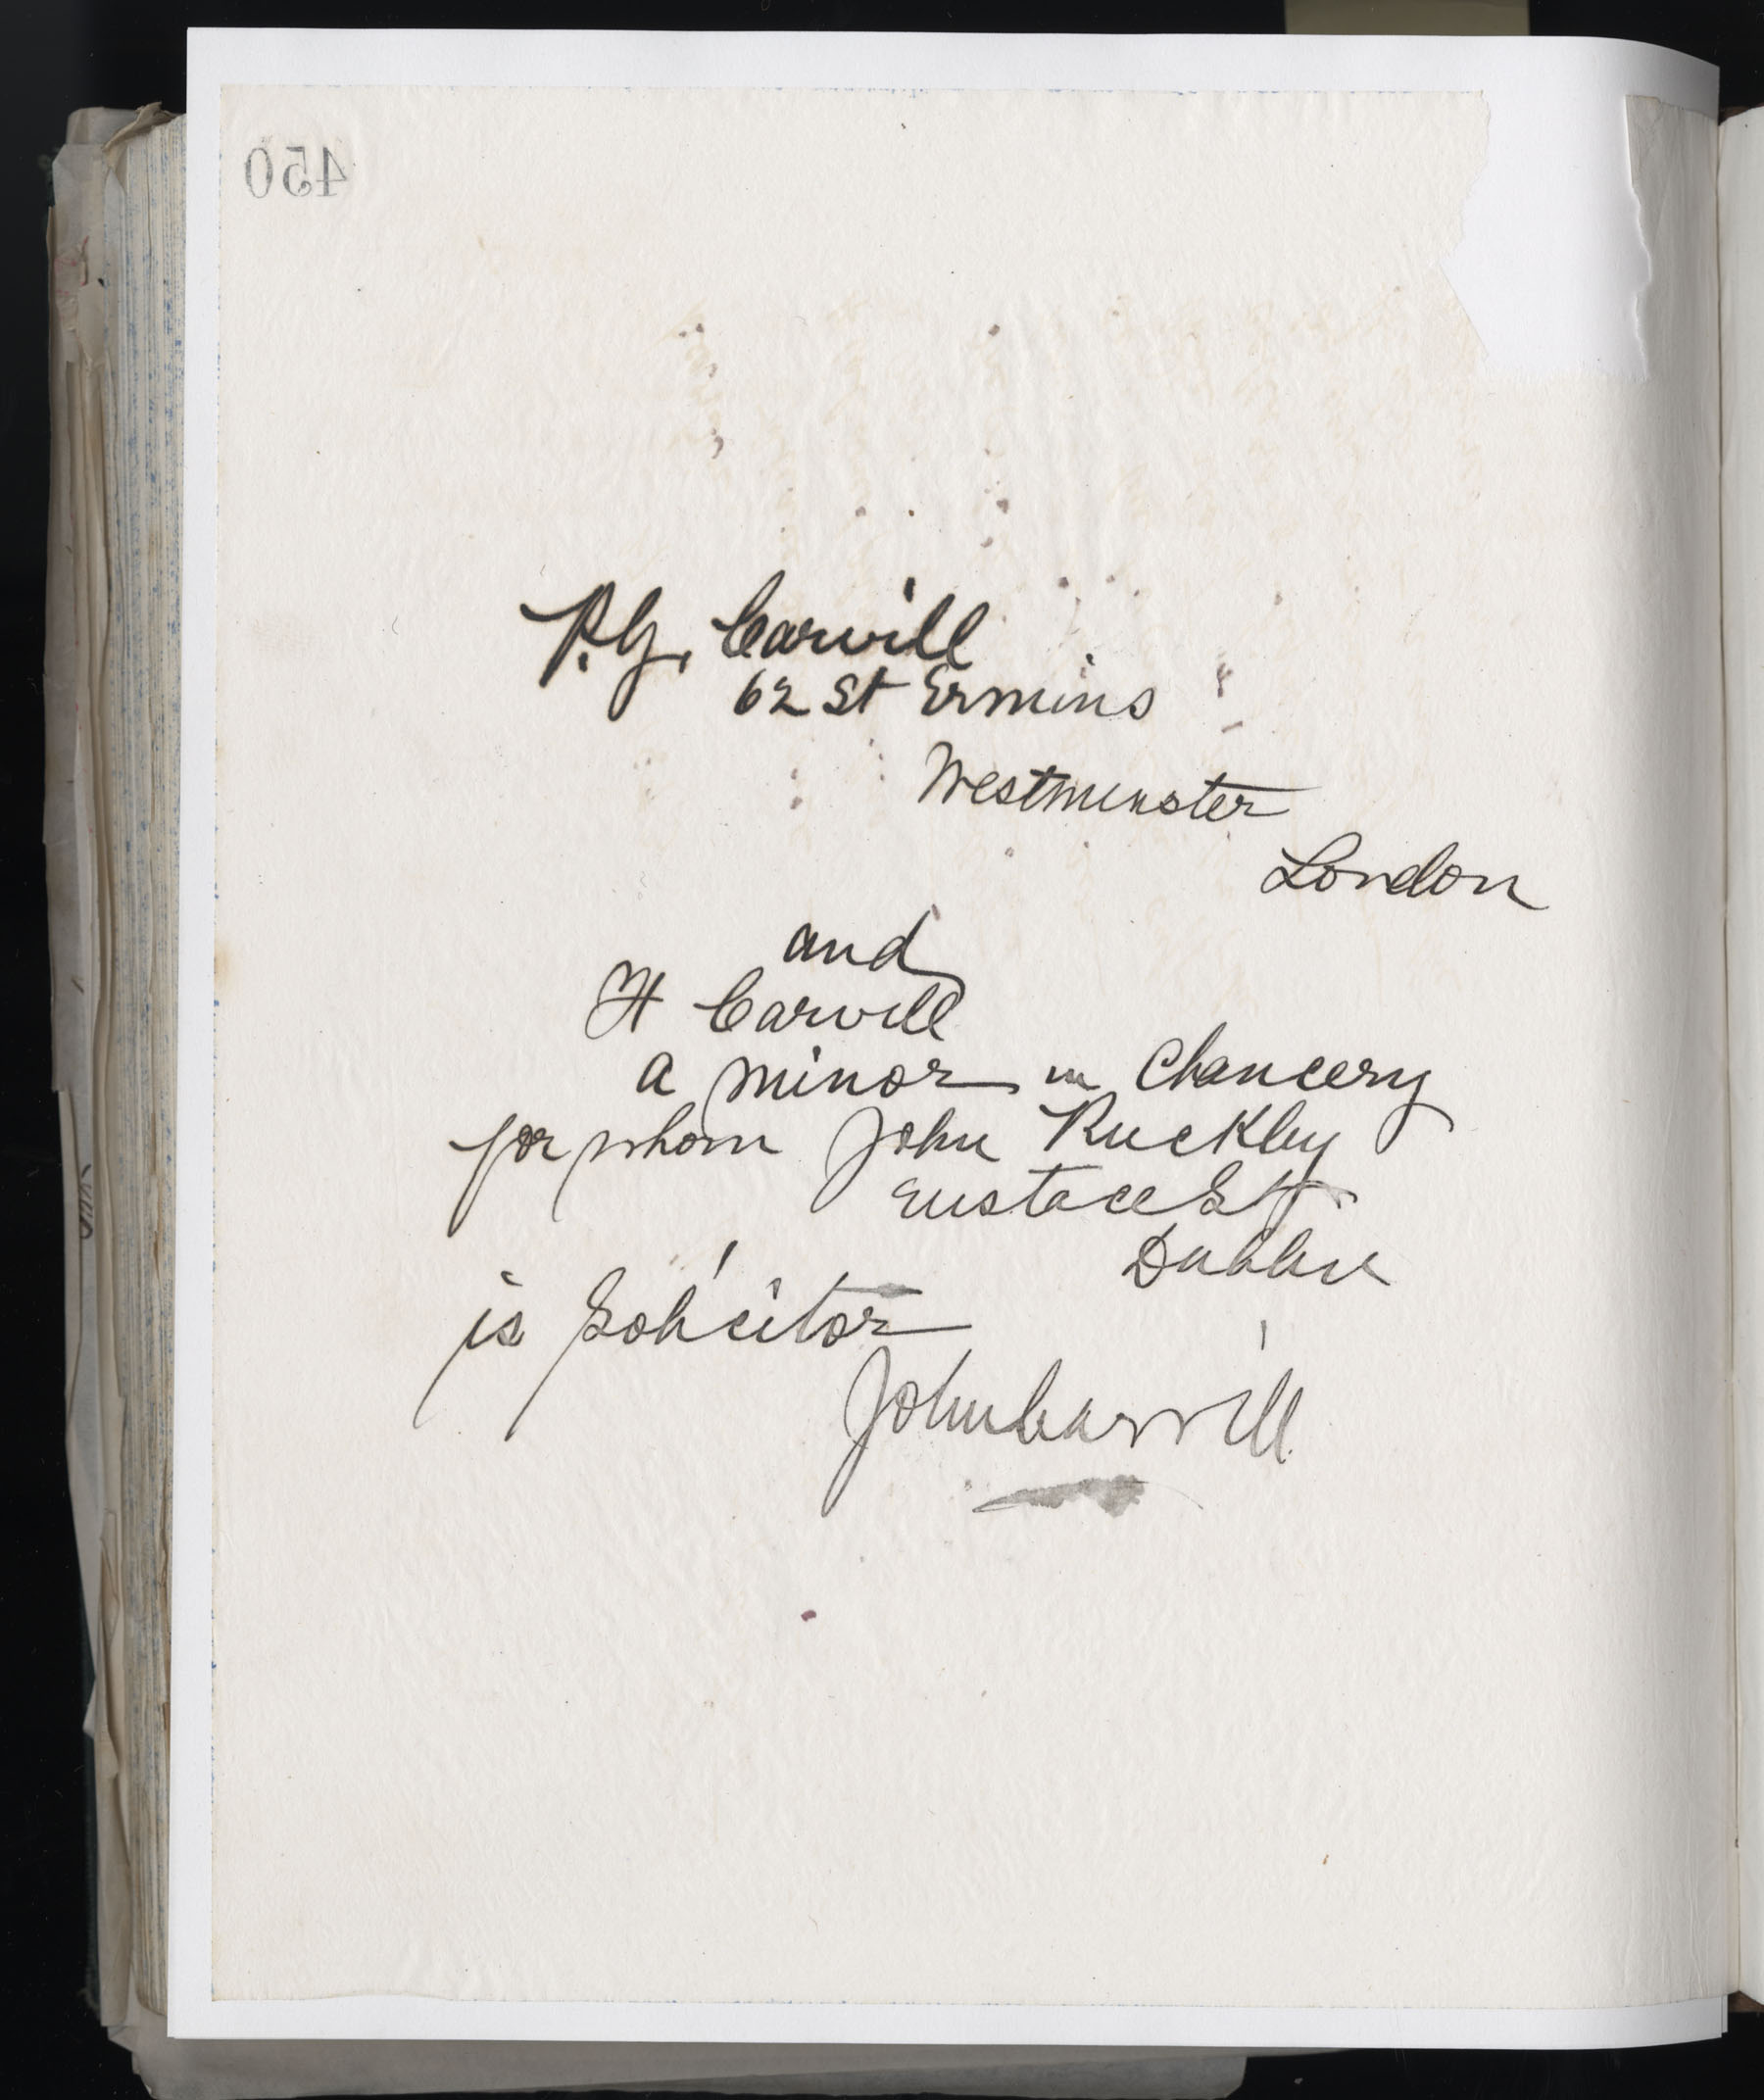 450
P.G. Carvill
62 St Ermins
Westminster
London
and
H Carvill
a minor in Chancery
for whom John
Eustace St
Dublin
is Solicitor
John Carvill